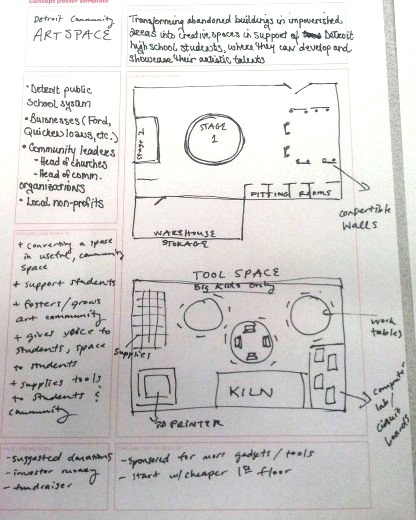 Concept poster template
Detroit Community
ART SPACE
Transforming abandoned buildings in impoverished
areas into creative spaces in support of Detroit
high school students, where they can develop and
showcase their artistic talents
• Detroit public
School system
• Businesses (Ford,
Quicken loans, etc.)
• Community leaders
- Head of churches
- Head of comm.
organizations
• Local non-profits
STAGE
1
Stage 2
FITTING ROOMS
convertible
walls
WAREHOUSE
STORAGE
+ converting a space
in useful, community
space
+ support students
+ fosters/grows
art community
+ gives voice to
students, space
to students
+ supplies tools
to students &
community
TOOL SPACE
Big Kids Only
Supplies
work
tables
KILN
3D PRINTER
computer
lab /
circuit
boards
- suggested donations
- investor money
- fundraiser
- sponsored for more gadgets / tools
- start w/ cheaper 1st floor